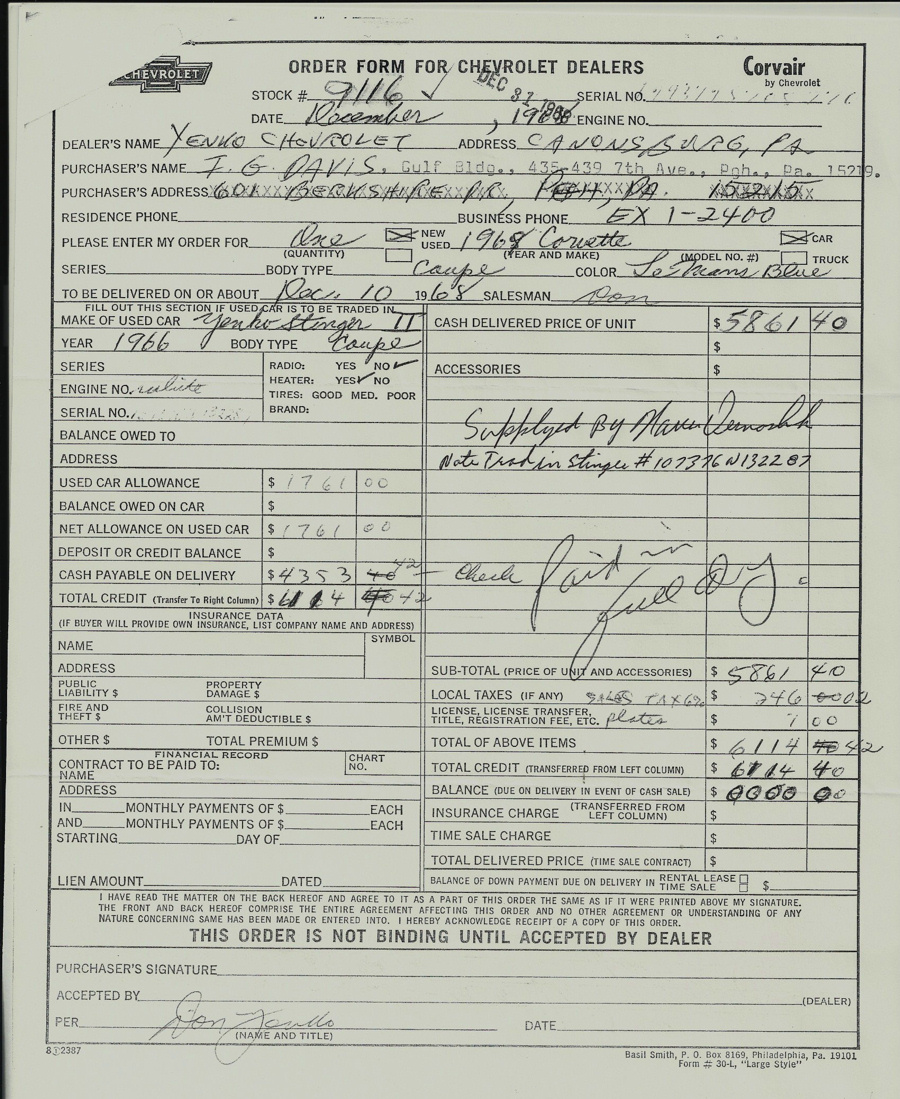 CHEVROLET
ORDER FORM FOR CHEVROLET DEALERS
Corvair
by Chevrolet
DEC 31 1968
STOCK # 9116 ✓ SERIAL NO.
DATE December, 1968 ENGINE NO.
DEALER'S NAME YENKO CHEVROLET ADDRESS CANONSBURG, PA.
PURCHASER'S NAME I. G. DAVIS, Gulf Bldg., 435-439 7th Ave., Pgh., Pa. 15219.
PURCHASER'S ADDRESS 601 BERKSHIRE DR, PGH, PA. 15215
RESIDENCE PHONE BUSINESS PHONE EX 1-2400
PLEASE ENTER MY ORDER FOR One NEW USED 1968 Corvette CAR
(QUANTITY) (YEAR AND MAKE) (MODEL NO. #) TRUCK
SERIES BODY TYPE Coupe COLOR LeMans Blue
TO BE DELIVERED ON OR ABOUT Dec. 10 1968 SALESMAN Don
FILL OUT THIS SECTION IF USED CAR IS TO BE TRADED IN
MAKE OF USED CAR Yenko Stinger II CASH DELIVERED PRICE OF UNIT $ 5861 40
YEAR 1966 BODY TYPE Coupe $
SERIES RADIO: YES NO ✓ ACCESSORIES $
ENGINE NO. HEATER: YES ✓ NO
TIRES: GOOD MED. POOR
SERIAL NO. BRAND:
Supplyed By
BALANCE OWED TO
ADDRESS Note Trad in Stinger # 107376W132287
USED CAR ALLOWANCE $ 1761 00
BALANCE OWED ON CAR $
NET ALLOWANCE ON USED CAR $ 1761 00
DEPOSIT OR CREDIT BALANCE $
CASH PAYABLE ON DELIVERY $ 4353 40 42 — Check Paid in full DY
TOTAL CREDIT (Transfer To Right Column) $ 6114 40 42
INSURANCE DATA
(IF BUYER WILL PROVIDE OWN INSURANCE, LIST COMPANY NAME AND ADDRESS)
NAME SYMBOL
ADDRESS SUB-TOTAL (PRICE OF UNIT AND ACCESSORIES) $ 5861 40
PUBLIC LIABILITY $ PROPERTY DAMAGE $ LOCAL TAXES (IF ANY) SALES TAX 6% $ 246 02
FIRE AND THEFT $ COLLISION AM'T DEDUCTIBLE $ LICENSE, LICENSE TRANSFER, TITLE, REGISTRATION FEE, ETC. plates $ 7 00
OTHER $ TOTAL PREMIUM $ TOTAL OF ABOVE ITEMS $ 6114 40 42
FINANCIAL RECORD
CONTRACT TO BE PAID TO: CHART NO. TOTAL CREDIT (TRANSFERRED FROM LEFT COLUMN) $ 6114 40
NAME
ADDRESS BALANCE (DUE ON DELIVERY IN EVENT OF CASH SALE) $ 0000 00
IN MONTHLY PAYMENTS OF $ EACH INSURANCE CHARGE (TRANSFERRED FROM LEFT COLUMN) $
AND MONTHLY PAYMENTS OF $ EACH
STARTING DAY OF TIME SALE CHARGE $
TOTAL DELIVERED PRICE (TIME SALE CONTRACT) $
LIEN AMOUNT DATED BALANCE OF DOWN PAYMENT DUE ON DELIVERY IN RENTAL LEASE TIME SALE $
I HAVE READ THE MATTER ON THE BACK HEREOF AND AGREE TO IT AS A PART OF THIS ORDER THE SAME AS IF IT WERE PRINTED ABOVE MY SIGNATURE.
THE FRONT AND BACK HEREOF COMPRISE THE ENTIRE AGREEMENT AFFECTING THIS ORDER AND NO OTHER AGREEMENT OR UNDERSTANDING OF ANY
NATURE CONCERNING SAME HAS BEEN MADE OR ENTERED INTO. I HEREBY ACKNOWLEDGE RECEIPT OF A COPY OF THIS ORDER.
THIS ORDER IS NOT BINDING UNTIL ACCEPTED BY DEALER
PURCHASER'S SIGNATURE
ACCEPTED BY (DEALER)
PER Don Yenko DATE
(NAME AND TITLE)
Basil Smith, P. O. Box 8169, Philadelphia, Pa. 19101
Form # 30-L, "Large Style"